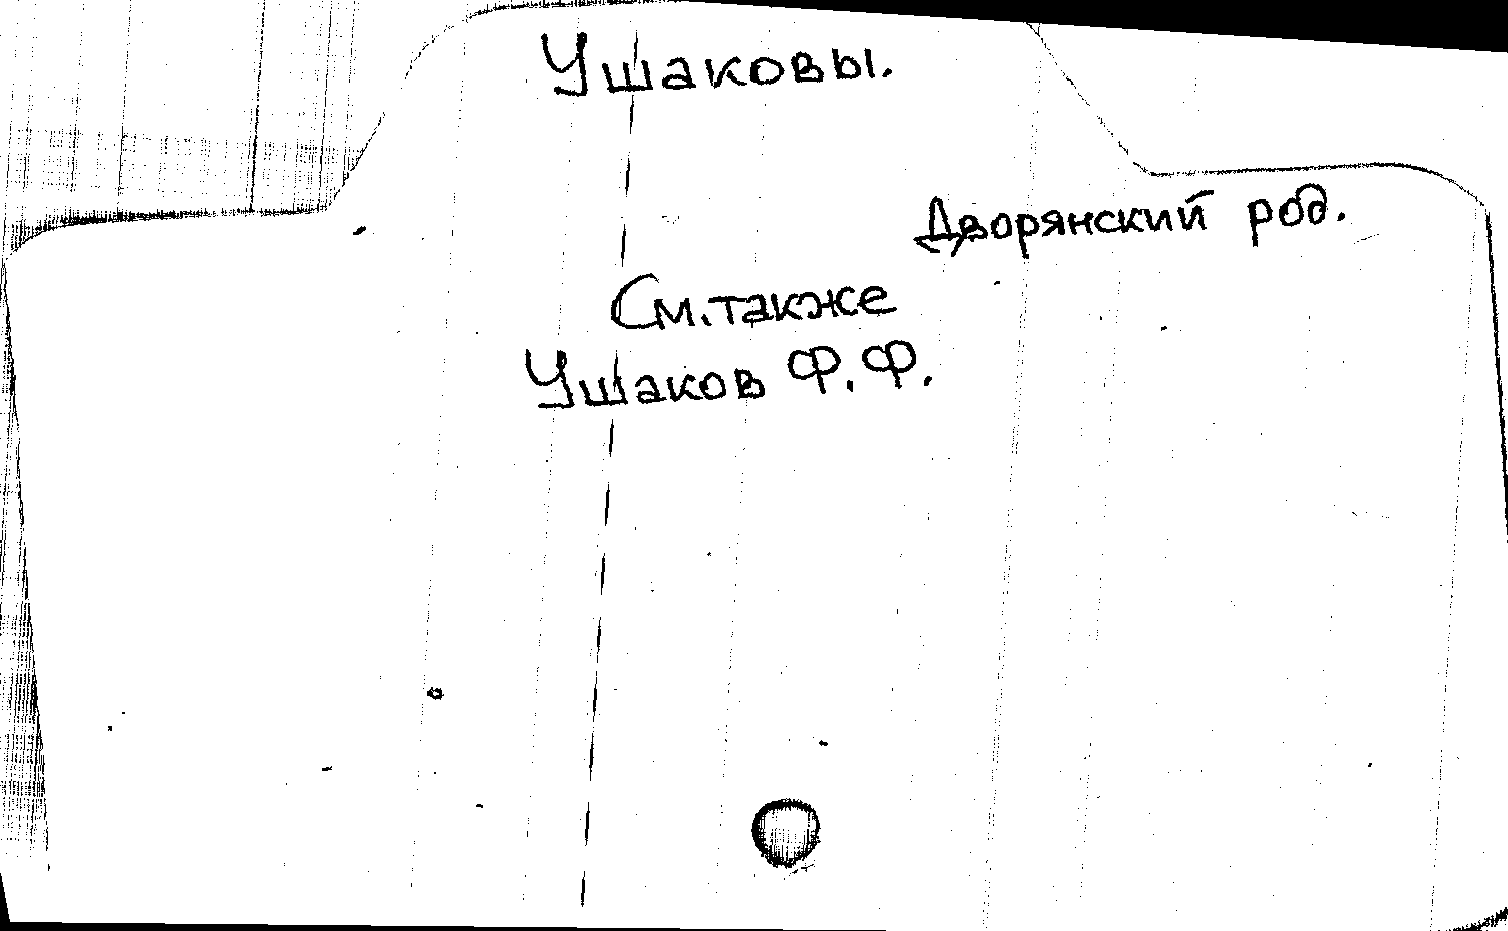 Ушаковы.
Дворянский род.
См. также
Ушаков Ф. Ф.